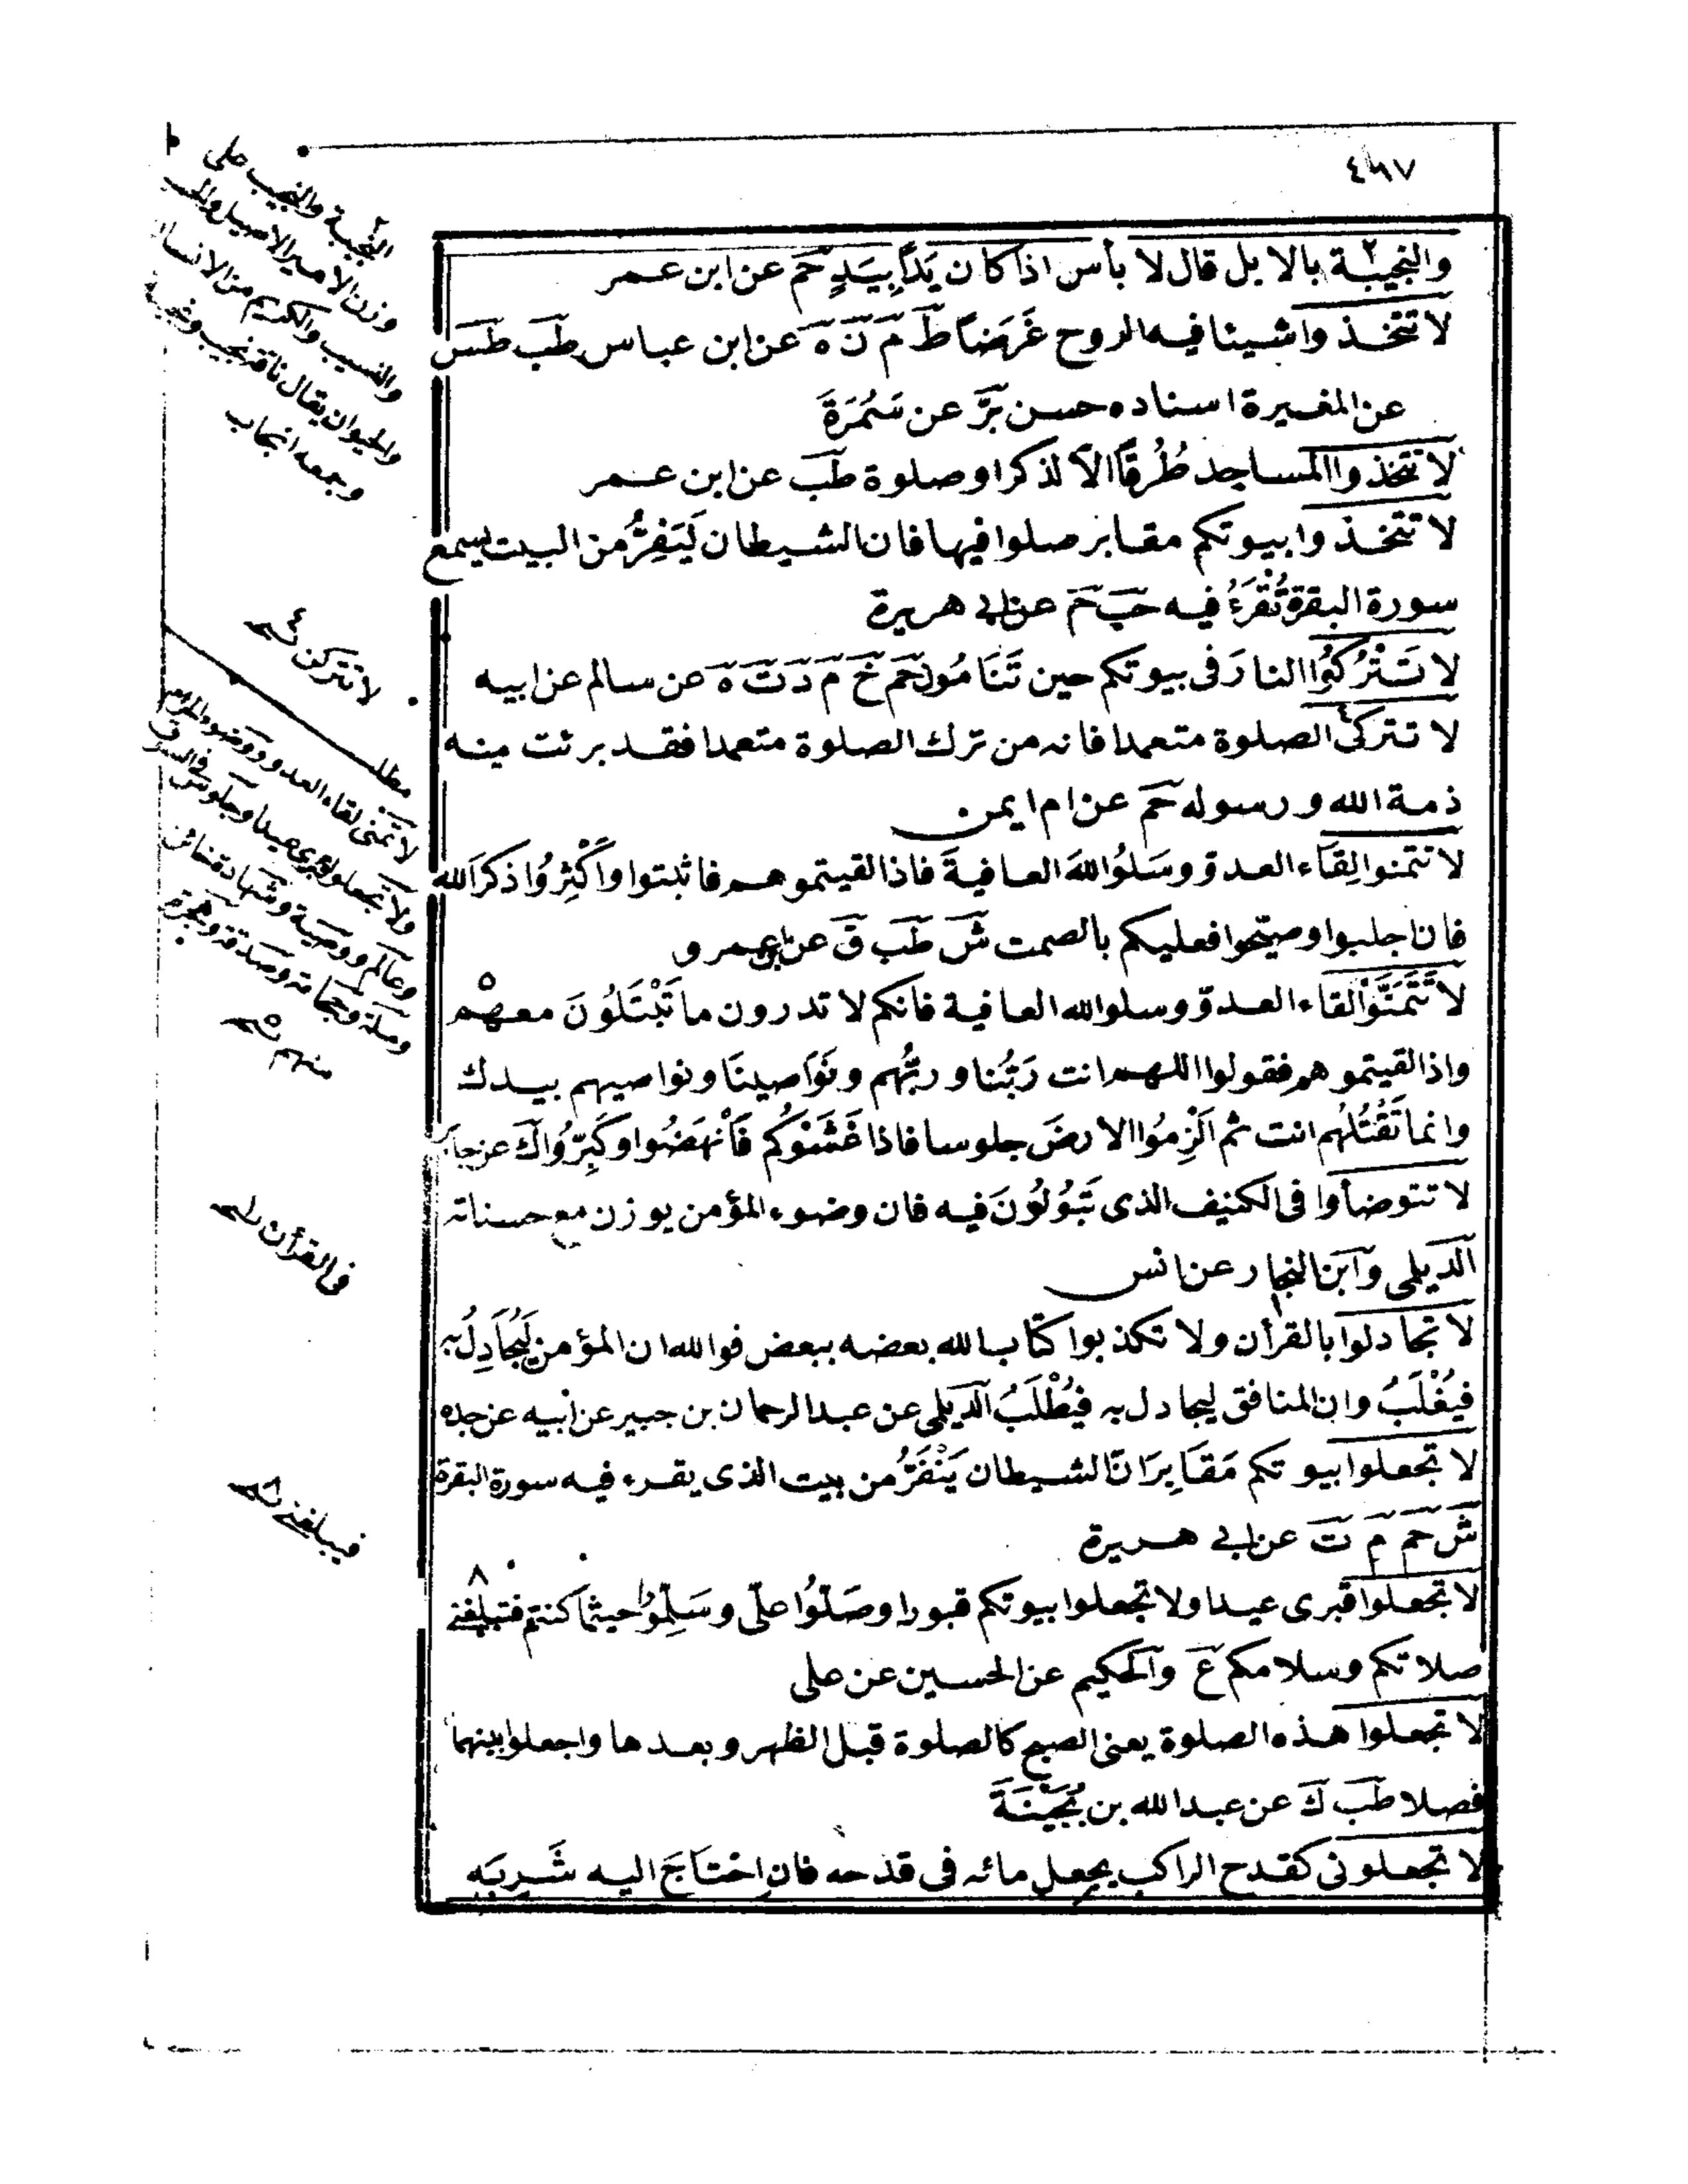 ٤٦٧
والنجيبة٢ بالابل قال لا بأس اذا كان يَدًا بِيَدٍ حم عن ابن عمر
لا تتخذوا شيئا فيه الروح غَرَضًا ط م ن ه عن ابن عباس طب طس
عن المغيرة اسناده حسن بَرَّ عن سَمُرَةَ
لا تتخذوا المساجد طُرُقًا الا لذكر او صلوة طب عن ابن عمر
لا تتخذوا بيوتكم مقابر صلوا فيها فان الشيطان لَيَفِرُّ من البيت يسمع
سورة البقرة تُقْرَءُ فيه حب حم عن ابى هريرة
لا تَتْرُكُوا النارَ فى بيوتكم حين تَنَامُون حم خ م د ت ه عن سالم عن ابيه
لا تتركى٤ الصلوة متعمدا فانه من ترك الصلوة متعمدا فقد برئت منه
ذمة الله ورسوله حم عن ام ايمن
لا تتمنوا لِقَاء العدو وسَلُوا اللهَ العافيةَ فاذا لقيتموهم فاثبتوا وأَكْثِرُوا ذكرَ الله
فان اجلبوا وصيّحوا فعليكم بالصمت ش طب ق عن ابن عمرو
لا تَتَمَنَّوْا لقاء العدوّ وسلوا الله العافية فانكم لا تدرون ما تَبْتَلُونَ معهم٥
واذا لقيتموهم فقولوا اللهم انت رَبُّنا وربُّهم ونَوَاصينَا ونواصيهم بيدك
وانما تَقْتُلُهم انت ثم الْزِمُوا الارضَ جلوسا فاذا غَشَوْكُم فَانْهَضُوا وكَبِّرُوا ك عن جابر
لا تتوضأوا فى الكنيف الذى تَبُولُونَ فيه فان وضوء المؤمن يوزن مع حسناته
الديلمى وابن النجار عن انس
لا تجادلوا بالقرأن ولا تكذبوا كتاب الله بعضه ببعض فوالله ان المؤمن لَيُجَادِلُ به
فيُغْلَبُ وان المنافق ليجادل به فيُطْلَبُ الديلمى عن عبد الرحمان بن جبير عن ابيه عن جده
لا تجعلوا بيوتكم مَقَابِرَ انّ الشيطان يَنْفَرُّ من بيت الذى يقرء فيه سورة البقرة
ش حم م ت عن ابى هريرة
لا تجعلوا قبرى عيدا ولا تجعلوا بيوتكم قبورا وصَلُّوا علىّ وسَلِّمُوا حيثما كنتم فتبلغنى٨
صلاتكم وسلامكم ع والحكيم عن الحسين عن على
لا تجعلوا هذه الصلوة يعنى الصبح كالصلوة قبل الظهر وبعدها واجعلوا بينهما
فصلا طب ك عن عبد الله بن بُحَيْنَةَ
لا تجعلونى كقدح الراكب يجعل مائه فى قدحه فان اِحْتَاجَ اليه شَرِبَه
النجيبة والنجيب على
وزن الامير الاصيل والحسيب
والنسيب والكريم من الانسان
والحيوان يقال ناقة نجيب ونجيبة
وجمعه انجاب
لا تتركن نسخه٤
مطلب
لا تمنى لقاء العدو ووضوء المؤمن
ولا تجعلوا قبرى عيدا وجلوس فى السوق
وعالم ووصية وشهادة خائن
وصلة وحجامة وصدقة وهجرة
منهم نسخه٥
فى القرأن نسخه
فيبلغنى نسخه